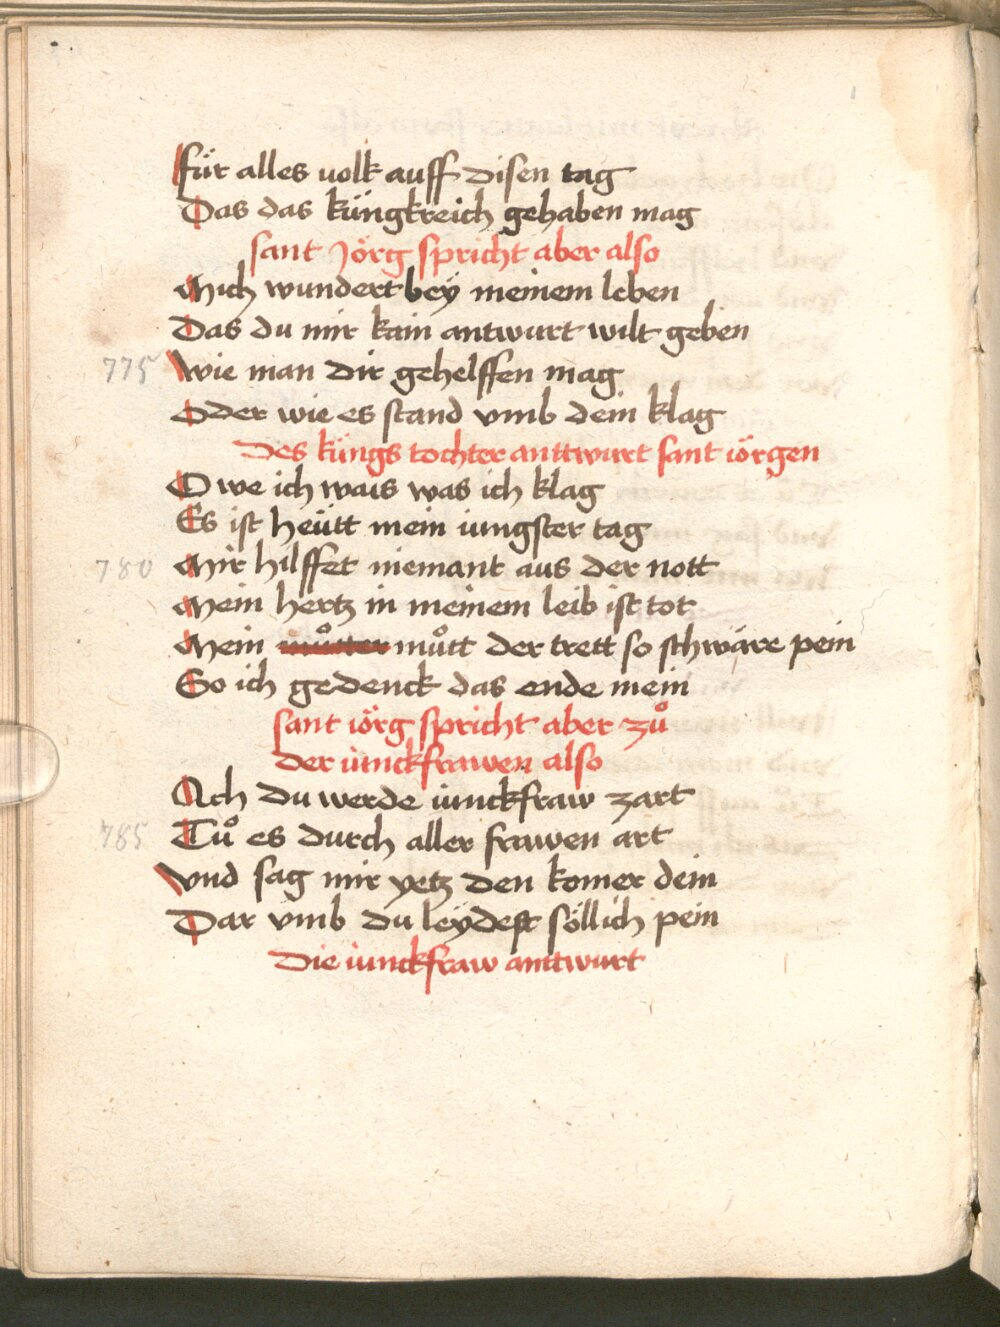 Für alles uolk auff disen tag
Das das küngkreich gehaben mag
sant Jörg spricht aber also
Mich wundert bey meinem leben
Das du mir kain antwurt wilt geben
775 Wie man dir gehelffen mag
Oder wie es stand vmb dein klag
Des küngs tochter anttwurt sant iörgen
O we ich wais was ich klag
Es ist heütt mein iungster tag
780 Mir hilffet niemant aus der nott
Mein hertz in meinem leib ist tot
Mein muͦtter muͦtt der trett so schwäre pein
So ich gedenck das ende mein
sant iörg spricht aber zuͦ
der iunckfrawen also
Ach du werde iunckfraw zart
785 Tuͦ es durch aller frawen art
Vnd sag mir yetz den komer dein
Dar vmb du leydest söllich pein
Die iunckfraw anttwurt